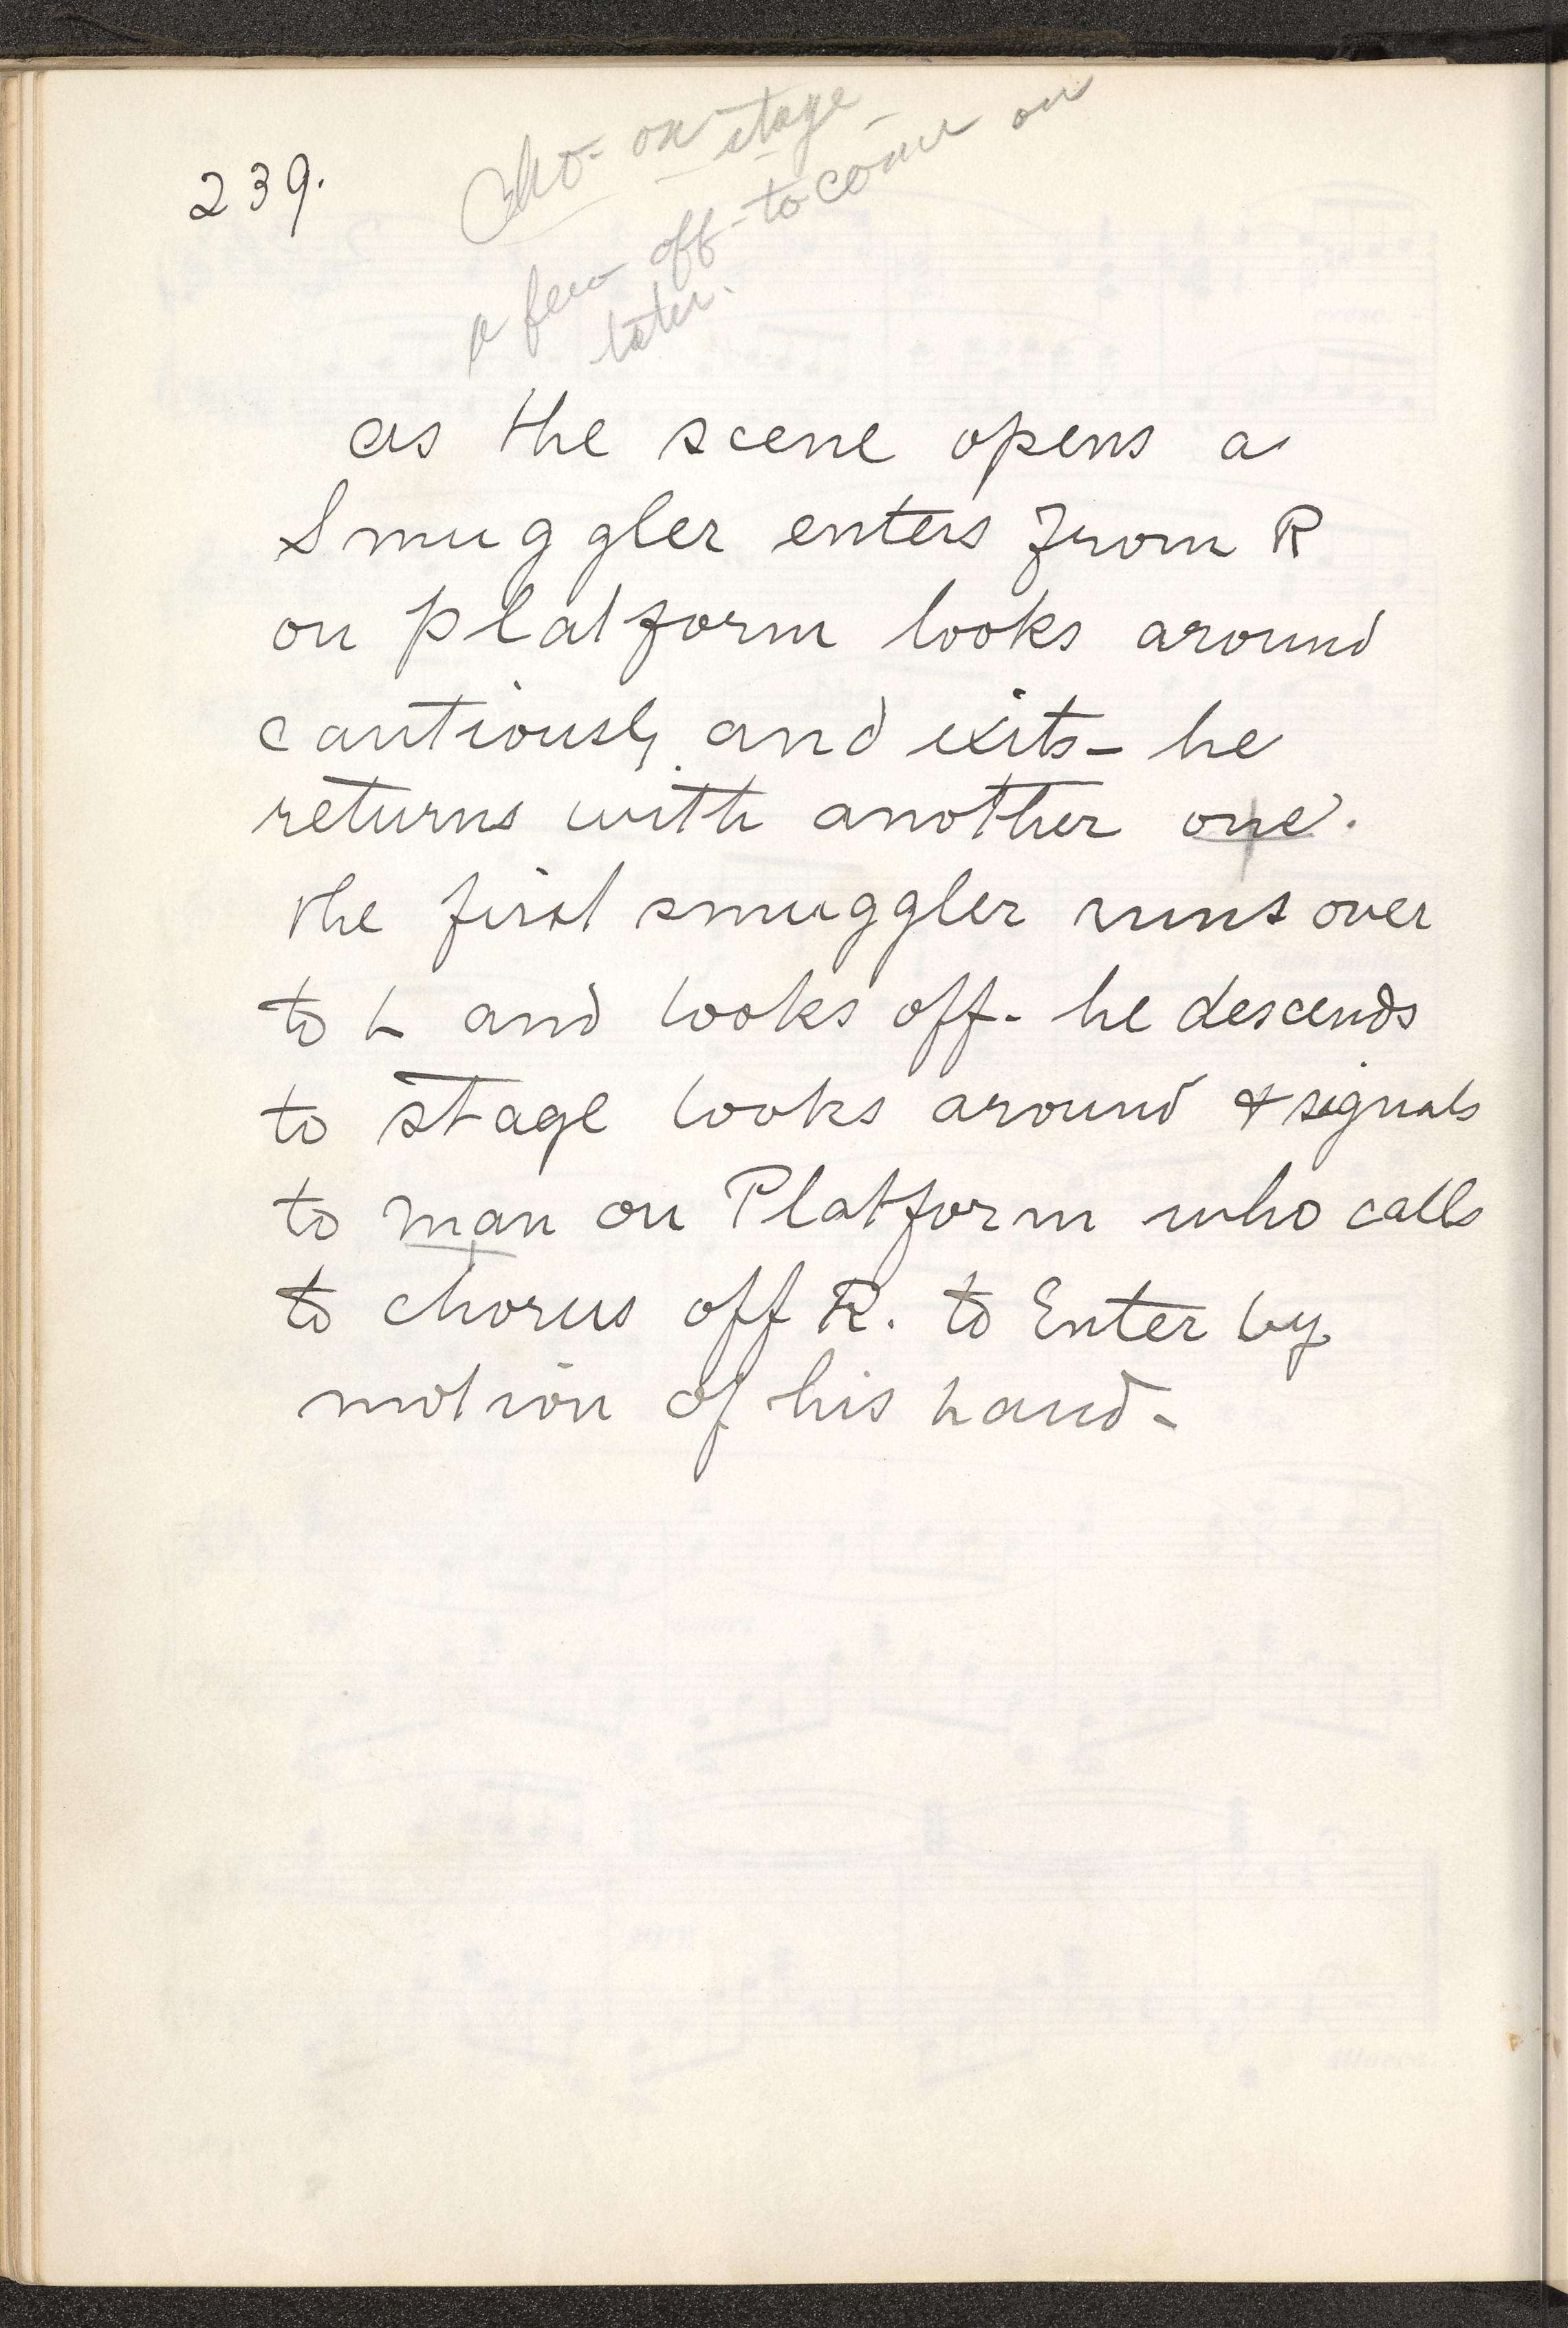 239.
Cho- on stage -
a few off - to come on
later.
as the scene opens a
Smuggler enters from R
on platform looks around
cautiously and exits - he
returns with another one.
the first smuggler runs over
to L and looks off - he descends
to stage looks around & signals
to man on Platform who calls
to chorus off R. to Enter by
motion of his hand -